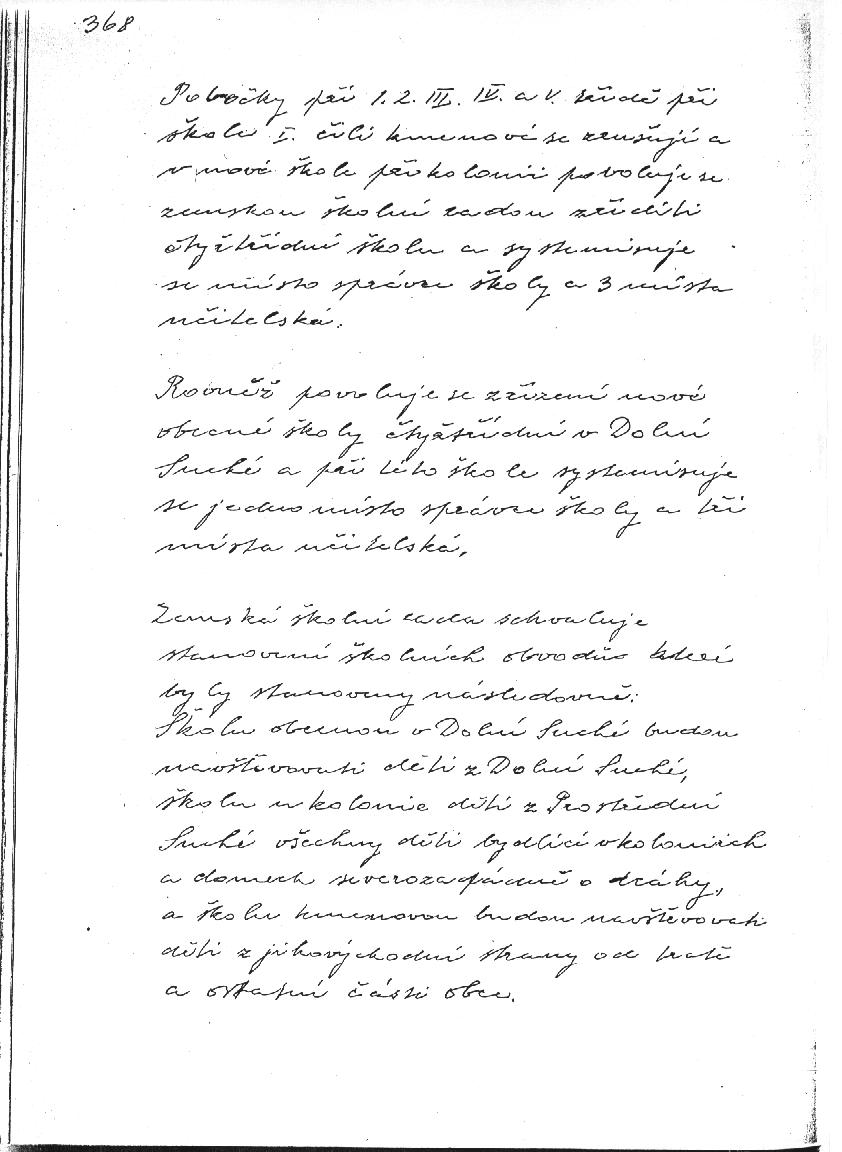 368
Pobočky při 1. 2. III. IV. a V. třídě při
škole I. čili kmenové se zrušují a
v nové škole při kolonii povoluje se
zemskou školní radou zříditi
čtyřtřídní školu a systemisuje
se místo správce školy a 3 místa
učitelská.
Rovněž povoluje se zřízení nové
obecné školy čtyřtřídní v Dolní
Suché a při této škole systemisuje
se jedno místo správce školy a tři
místa učitelská.
Zemská školní rada schvaluje
stanovení školních obvodů kteří
byly stanoveny následovně:
Školu obecnou v Dolní Suché budou
navštěvovati děti z Dolní Suché,
školu u kolonie děti z Prostřední
Suché všechny děti bydlící v koloniích
a domech severozapádně o dráhy,
a školu kmenovou budou navštěvovati
děti z jihovýchodní strany od tratě
a ostatní části obce.